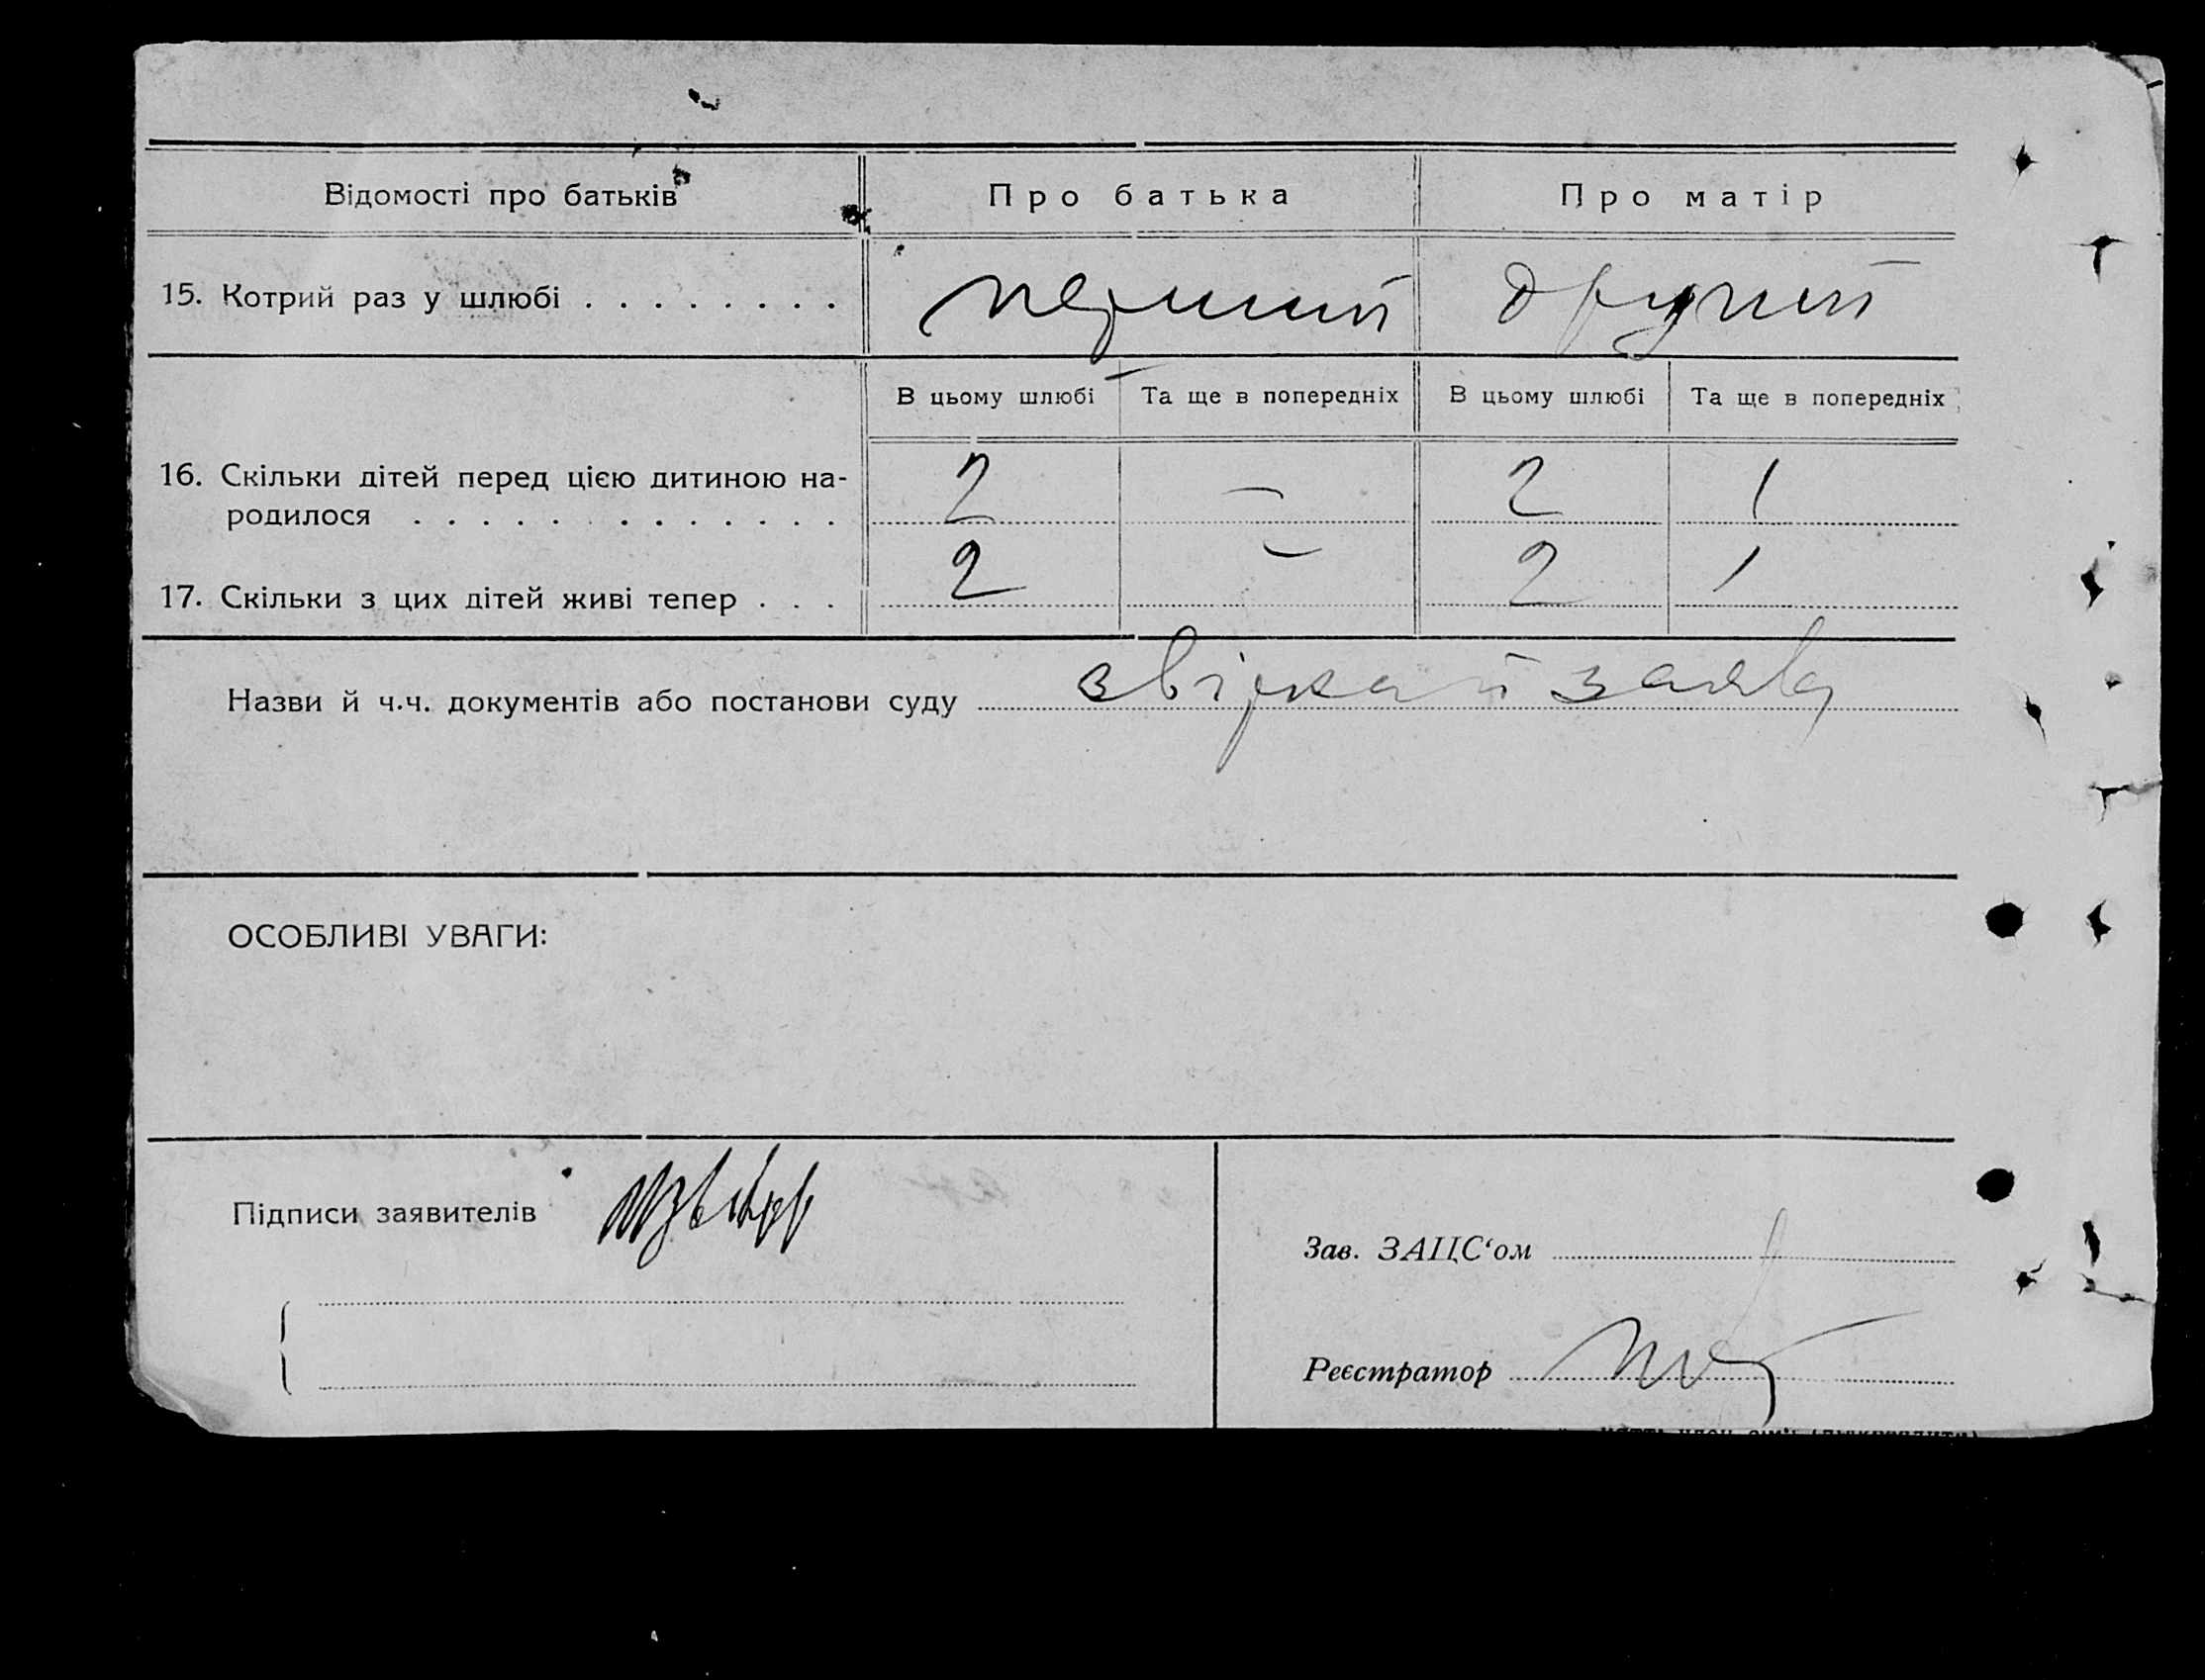 Відомості про батьків Про батька Про матір
15. Котрий раз у шлюбі . . . . . . . . перший другий
В цьому шлюбі Та ще в попередніх В цьому шлюбі Та ще в попередніх
16. Скільки дітей перед цією дитиною на-
родилося . . . . . . . . . . . . . 2 — 2 1
17. Скільки з цих дітей живі тепер . . . 2 — 2 1
Назви й ч.ч. документів або постанови суду заява
ОСОБЛИВІ УВАГИ:
Підписи заявителів
Зав. ЗАЦС‘ом
Реєстратор